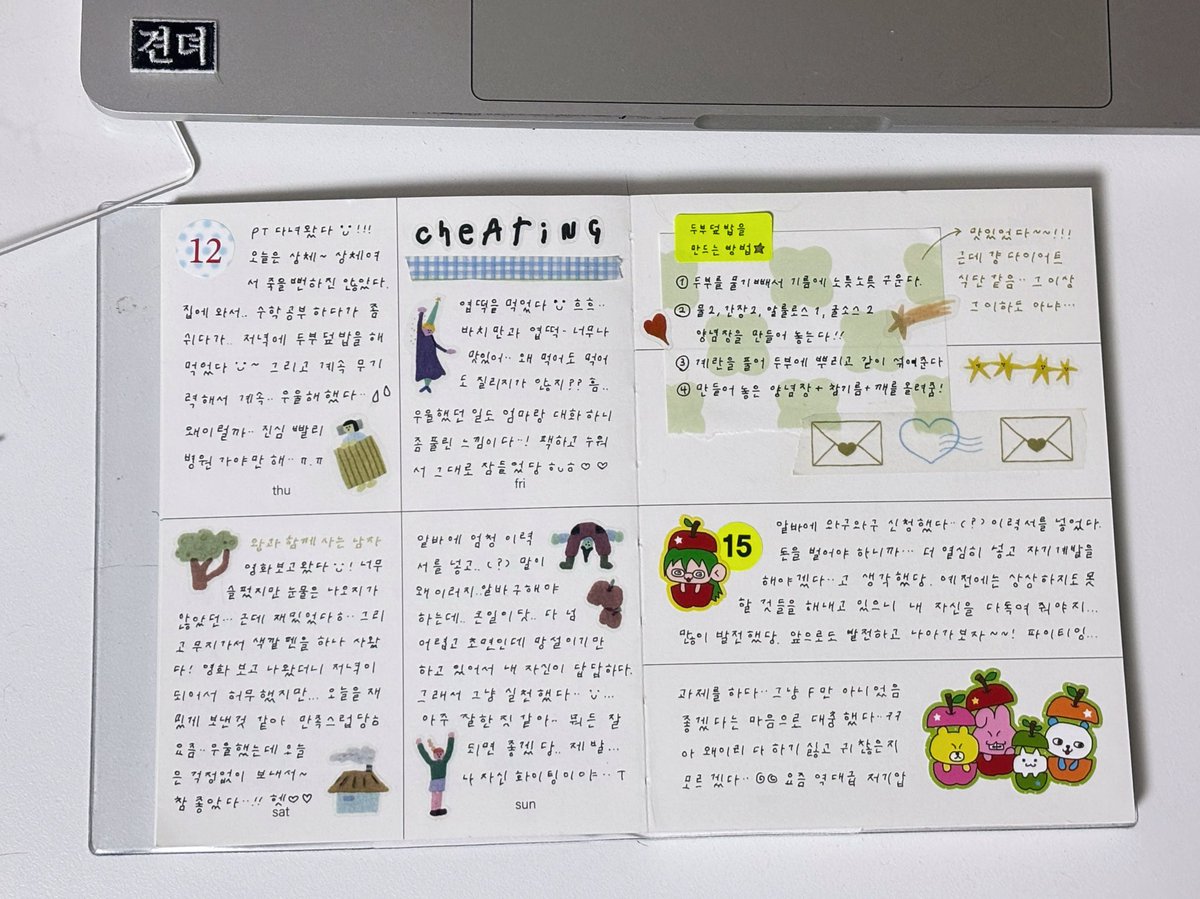 견뎌
12
PT 다녀왔다 !!!
오늘은 상체~ 상체여
서 죽을뻔하진 않았다.
집에 와서.. 수학공부 하다가 좀
쉬다가.. 저녁에 두부덮밥을 해
먹었다 ~ 그리고 계속 무기
력해서 계속.. 우울해했다..
왜이럴까.. 진심 빨리
병원 가야만 해.. ㅠ.ㅠ
thu
cheATiNG
엽떡을 먹었다 흐흐..
바치만과 엽떡- 너무나
맛있어.. 왜 먹어도 먹어
도 질리지가 않지?? 흠..
우울했던 일도 엄마랑 대화 하니
좀 풀린 느낌이다..! 팩하고 누워
서 그대로 잠들었당 ♡♡
fri
두부덮밥을
만드는 방법
① 두부를 물기 빼서 기름에 노릇노릇 구운다.
② 물2, 간장2, 알룰로스 1, 굴소스 2
양념장을 만들어 놓는다!!
③ 계란을 풀어 두부에 뿌리고 같이 섞여준다
④ 만들어 놓은 양념장 + 참기름 + 깨를 올려줌!
맛있었다~~!!!
근데 걍 다이어트
식단 같음.. 그 이상
그 이하도 아냐...
왕과 함께 사는 남자
영화보고왔다 ! 너무
슬펐지만 눈물은 나오지가
않았던... 근데 재밌었다ㅎ.. 그리
고 무지가서 색깔펜을 하나 사왔
다! 영화 보고 나왔더니 저녁이
되어서 허무했지만... 오늘을 재
밌게 보낸것 같아 만족스럽당ㅎ
요즘.. 우울했는데 오늘
은 걱정없이 보내서~
참 좋았다..!! 헷♡♡
sat
알바에 엄청 이력
서를 넣고.. (?) 말이
왜 이러지.. 알바 구해야
하는데.. 큰일이닷.. 다 넘
어렵고 초면인데 망설이기만
하고 있어서 내 자신이 답답하다.
그래서 그냥 실천했다.. ...
아주 잘한 짓 같아~ 뭐든 잘
되면 좋겠당.. 제발...
나 자신 화이팅이야.. T
sun
15
알바에 와구와구 신청했다.. (?) 이력서를 넣었다.
돈을 벌어야 하니까... 더 열심히 넣고 자기계발을
해야겠다..고 생각했당. 예전에는 상상하지도 못
할 것들을 해내고 있으니 내 자신을 다독여 줘야지...
많이 발전했당. 앞으로도 발전하고 나아가보자~~! 파이티잉...
과제를 하다.. 그냥 F만 아니었음
좋겠다는 마음으로 대충했다..ㅋㅋ
아 왜이리 다 하기 싫고 귀찮은지
모르겠다.. 요즘 역대급 저기압